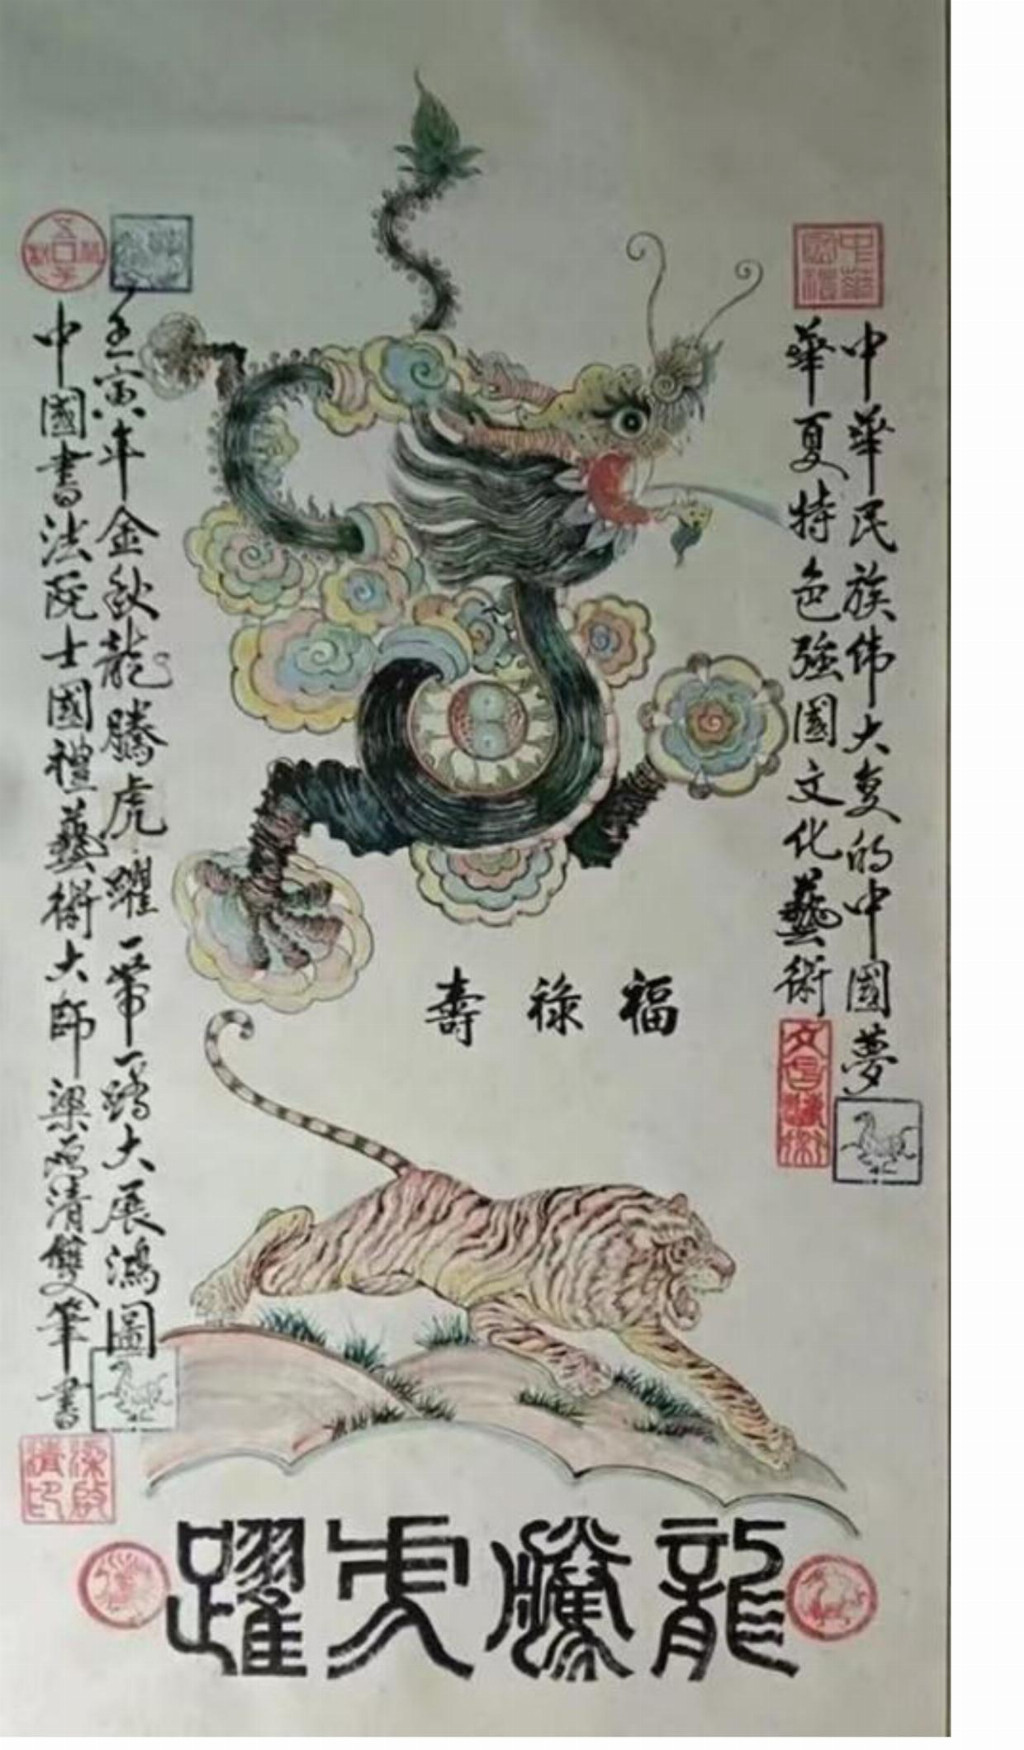 中華民族伟大复的中國夢
華夏特色強國文化藝術
福祿壽
壬寅年金秋龍騰虎躍一帶一路大展鴻圖
中國書法院士國禮藝術大師梁啟清雙筆書
梁啟清印
龍騰虎躍